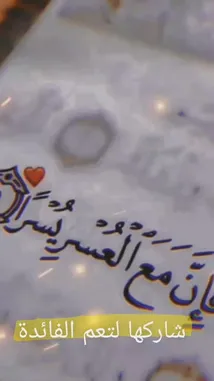 فَإِنَّ مَعَ الْعُسْرِ يُسْرًا
شاركها لتعم الفائدة